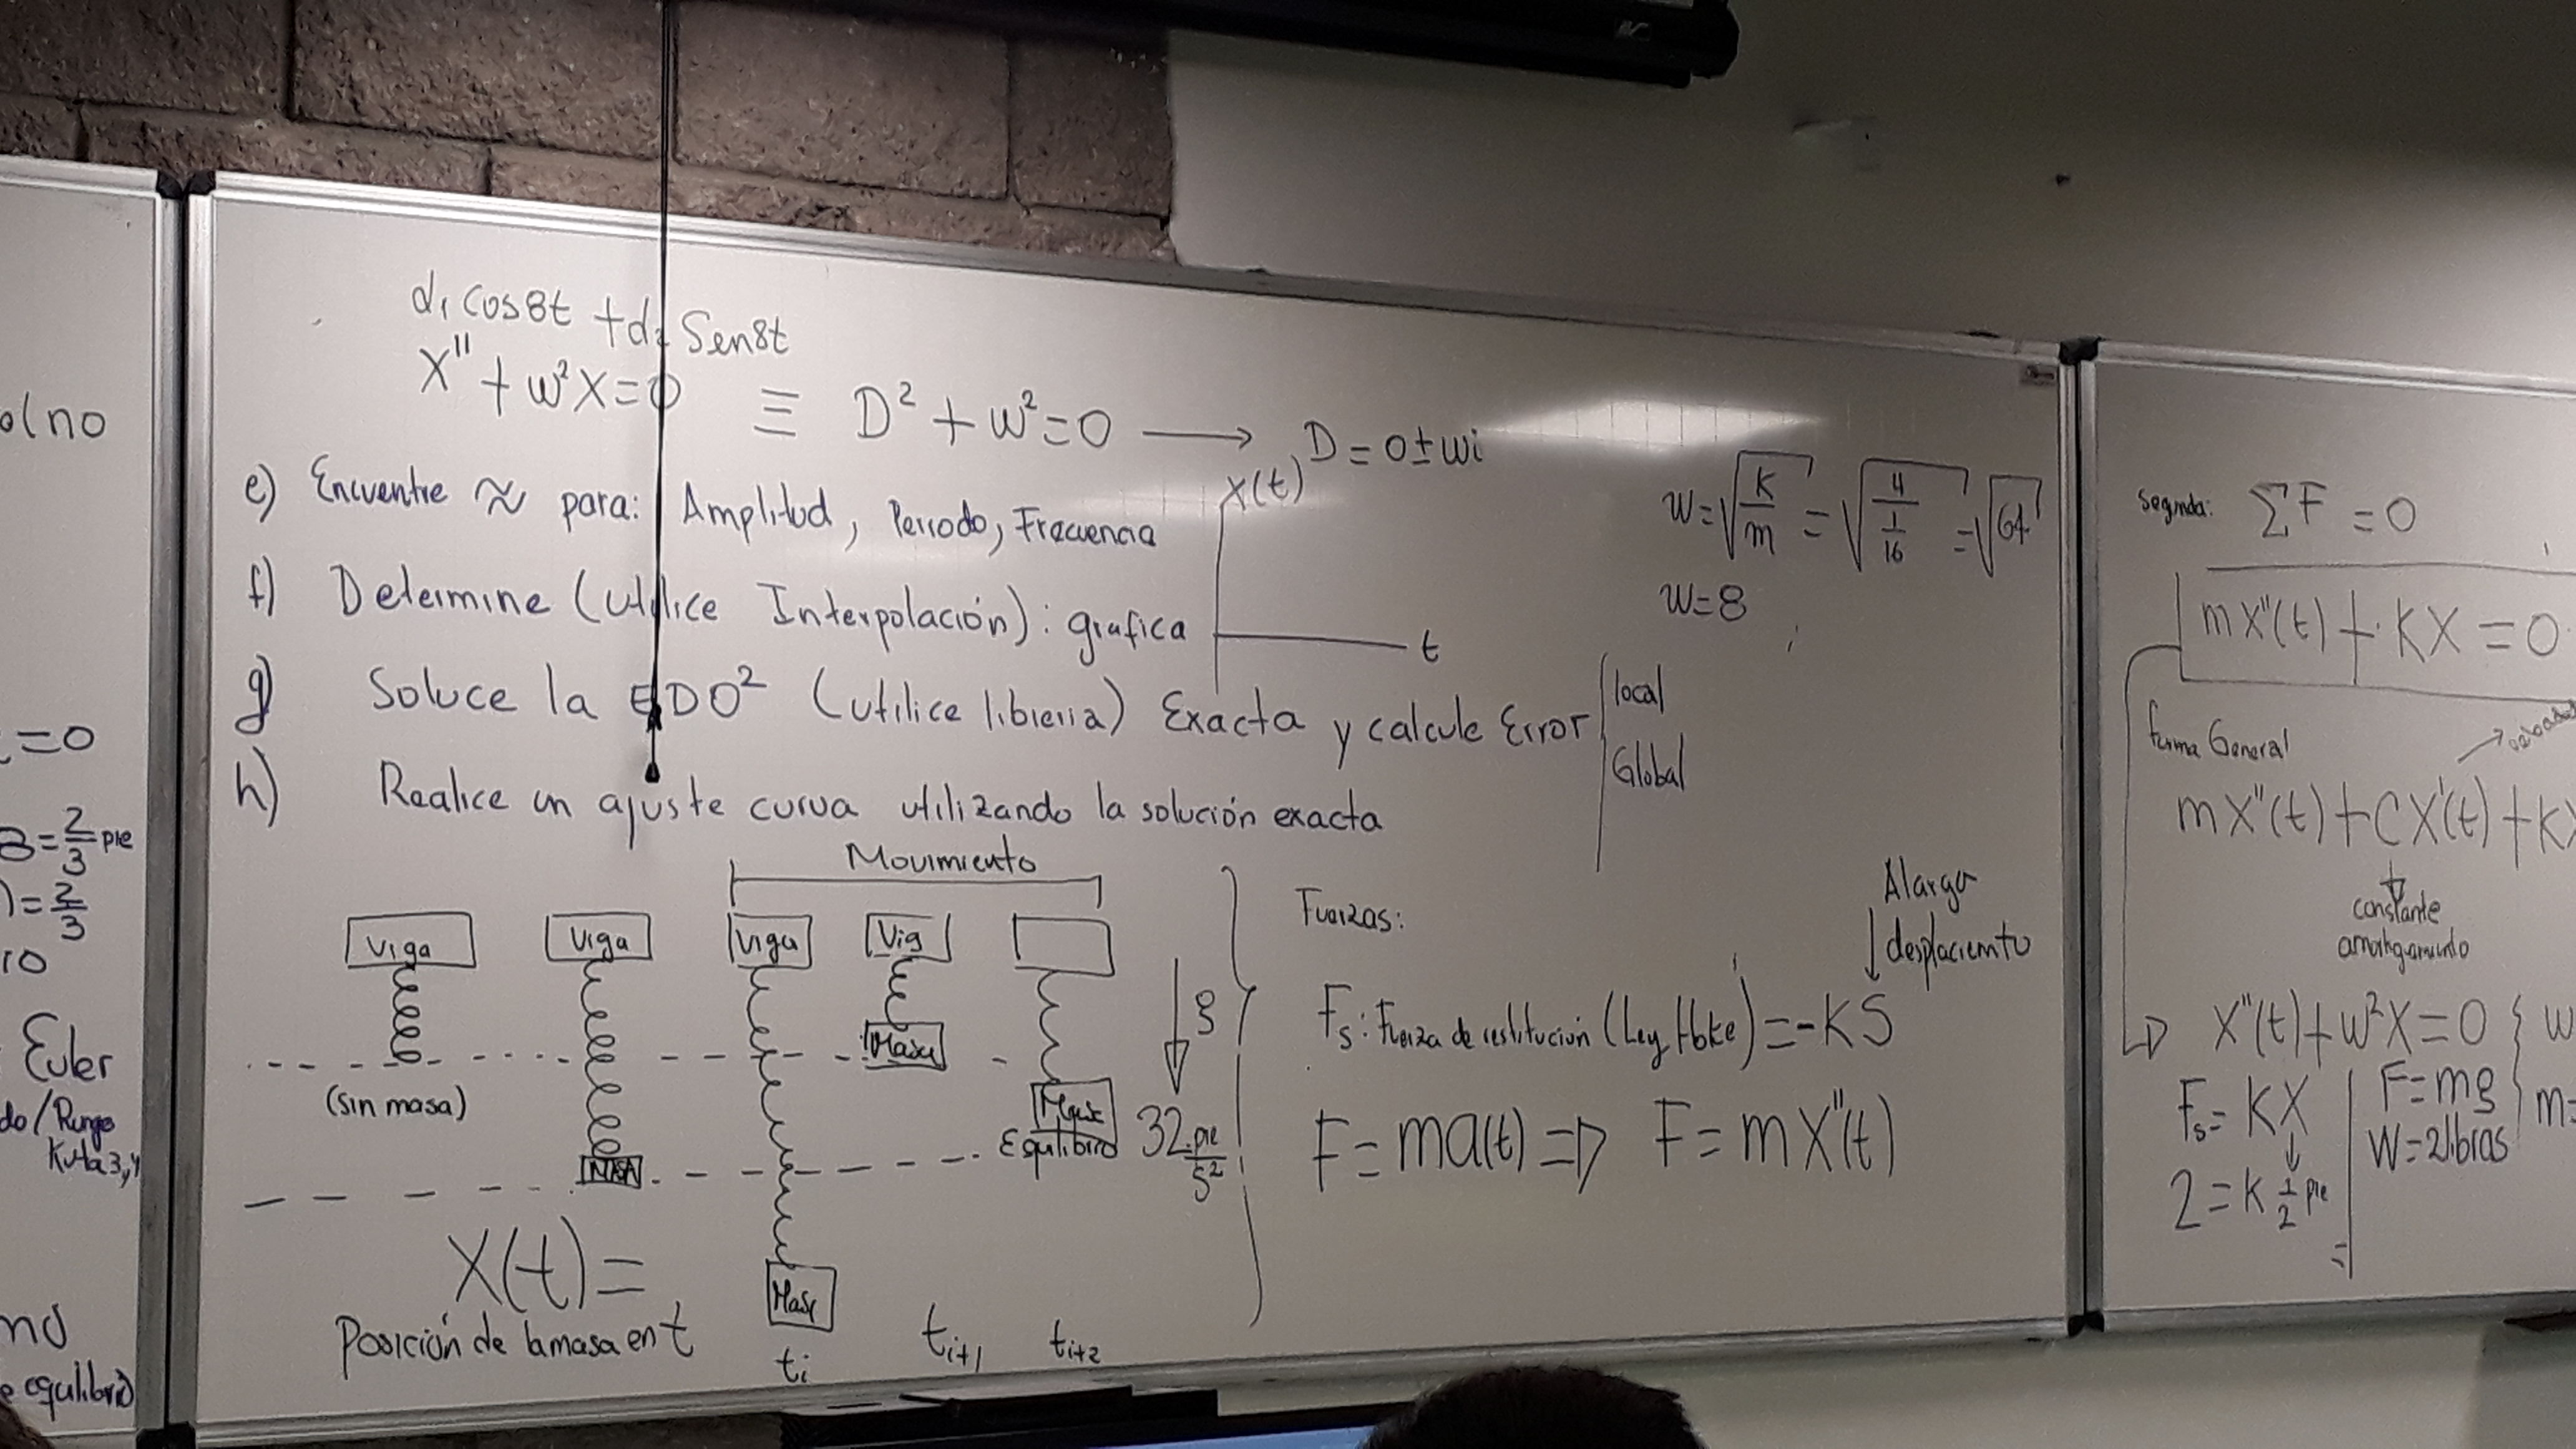 o(no
=0
8=2/3 pie
)=2/3
10
Euler
do/Runge
Kutta3,4
no
e equlibrio
d₁ Cos8t + d₂ Sen8t
X'' + w²X=0 ≡ D² + w²=0 → D = 0±wi
e) Encuentre ≈ para: Amplitud, Periodo, Frecuencia
X(t)
t
f) Determine (utilice Interpolación): grafica
g) Soluce la EDO² (utilice libreria) Exacta y calcule Error
local
Global
h) Realice un ajuste curva utilizando la solución exacta
w=√(K/m) = √(4/(1/16)) = √64
w=8
Movimiento
Viga Viga Viga Vig
(sin masa)
MASA
Masa
Masa
Equlibrio
Masa
g
32 pie/s²
X(t)=
Posición de la masa en t
ti ti+1 ti+2
Fuerzas:
Alarga
desplaciemto
Fs: Fuerza de restitución (Ley Hoke) = -KS
F= ma(t) ⇒ F= mX''(t)
Segnda: ΣF = 0
mX''(t) + KX = 0
Forma General
mX''(t)+CX'(t)+KX
constante
X''(t)+w²X=0 { w
Fs= KX
2=K 1/2 pie
=
F=mg
W=2libras
m=